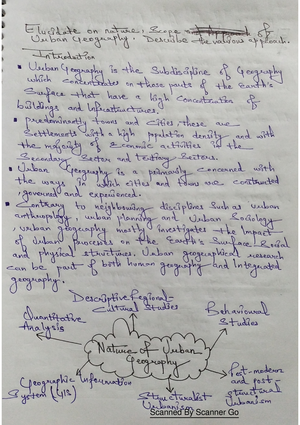 Elucidate on nature, Scope of
Urban Geography. Describe the various approach.
Introduction
Urban Geography is the Subdiscipline of Geography
which concentrates on those parts of the Earth's
Surface that have a high concentration of
buildings and infrastructures.
Predominently towns and cities, these are
Settlements with a high population density and with
the majority of Economic activities in the
Secondary Sector and tertiary Sectors.
Urban Geography is a primarily concerned with
the ways in which cities and towns are constructed
, governed and experienced.
Contrary to neighbouring disciplines Such as urban
anthropology, urban planning and Urban Sociology
, urban geography mostly investigates the Impact
of Urban processes on the Earth's Surface Social
and physical structures. Urban geographical research
can be part of both human geography and Integrated
geography.
Descriptive Regional-
Cultural Studies
Quantitative
Analysis
Behavioural
Studies
Nature of Urban
Geography
Geographic Information
System (GIS)
Structuralist
Urbanism
Post-modern
and post-
structural
Urbanism
Scanned By Scanner Go